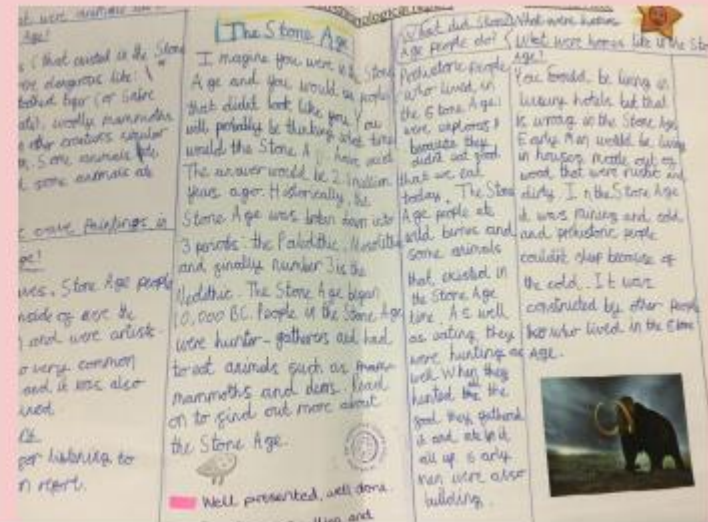 were animals like
Age?
s that existed in the Stone
were dangerous like:
toothed tiger (or Sabre
cats), woolly mammoths
other creatures similar
Some animals
some animals ate
cave paintings in
Age?
caves. Stone Age people
inside of were the
and were artists.
very common
and it was also
used.
for listening to
report.
The Stone Age
I magine you were in the Stone
Age and you would see people
that didn't look like you. You
will probably be thinking what time
would the Stone A have
The answer would be 2.1 million
years ago. Historically, the
Stone Age was broken down into
3 periods: the
and finally number 3 is the
The Stone Age began
10,000 BC. People in the Stone Age
were hunter-gatherers and had
to eat animals such as
mammoths and deers. Read
on to find out more about
the Stone Age.
Well presented, well done.
and
What did Stone
Age people do?
Prehistoric people
who lived in
the Stone Age
were explorers
because they
didn't eat food
that we eat
today. The Stone
Age people ate
wild berries and
some animals
that existed in
the Stone Age
time. As well
as eating they
were hunting as
well. When they
hunted the
food they gathered
it and ate it
all up. Early
men were also
building.
What were homes
What were homes like in the Stone
Age?
You could be living in
luxury hotels but that
is wrong in the Stone Age
Early Man would be living
in houses made out of
wood that were rustic and
dirty. I n the Stone Age
it was raining and cold
and prehistoric people
couldn't sleep because of
the cold. It was
constructed by other people
who lived in the Stone
Age.